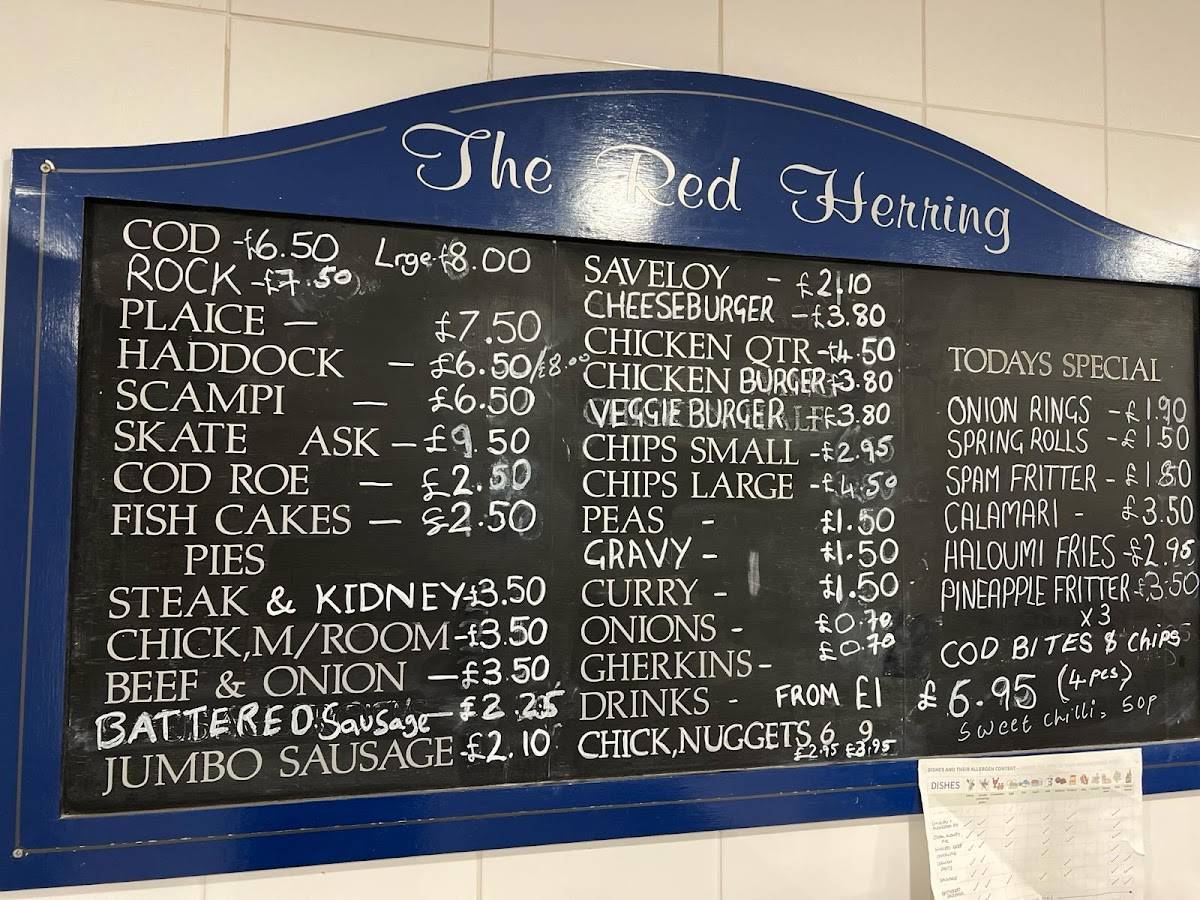 The Red Herring
COD -£6.50 Lrge £8.00
ROCK -£7.50
PLAICE - £7.50
HADDOCK - £6.50/£8.00
SCAMPI - £6.50
SKATE ASK - £9.50
COD ROE - £2.50
FISH CAKES - £2.50
PIES
STEAK & KIDNEY-£3.50
CHICK,M/ROOM-£3.50
BEEF & ONION -£3.50
BATTERED Sausage - £2.25
JUMBO SAUSAGE -£2.10
SAVELOY - £2.10
CHEESEBURGER -£3.80
CHICKEN QTR -£4.50
CHICKEN BURGER £3.80
VEGGIE BURGER £3.80
CHIPS SMALL -£2.95
CHIPS LARGE -£4.50
PEAS - £1.50
GRAVY - £1.50
CURRY - £1.50
ONIONS - £0.70
GHERKINS - £0.70
DRINKS - FROM £1
CHICK,NUGGETS 6 9
£2.95 £3.95
TODAYS SPECIAL
ONION RINGS - £1.90
SPRING ROLLS - £1.50
SPAM FRITTER - £1.80
CALAMARI - £3.50
HALOUMI FRIES -£2.95
PINEAPPLE FRITTER -£3.50
x3
COD BITES & CHIPS
£6.95 (4pcs)
Sweet chilli, 50p
DISHES AND THEIR ALLERGEN CONTENT
DISHES